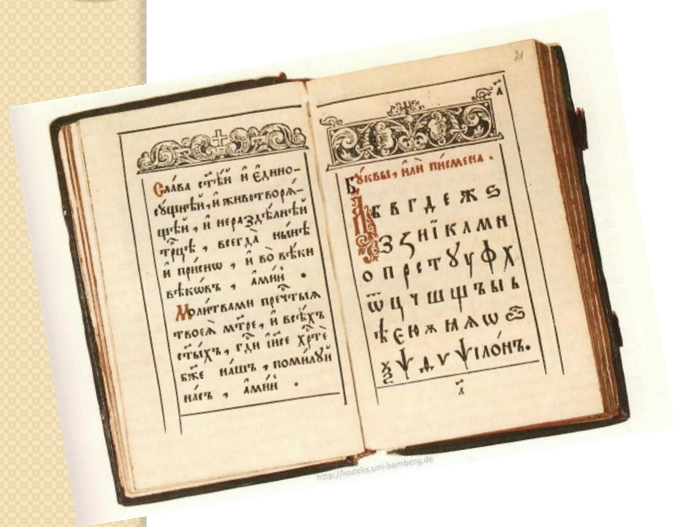 Сла́ва ст҃ѣ́й и҆ є҆дино-
сꙋ́щнѣй, и҆ животворѧ́-
щѣй, и҆ нераздѣ́лнѣй
трⷪ҇цѣ, всегда̀ ны́нѣ
и҆ при́снѡ, и҆ во вѣ́ки
вѣкѡ́въ, а҆ми́нь.
Моли́твами пречⷭ҇тыѧ
твоеѧ̀ мт҃ре, и҆ всѣ́хъ
ст҃ы́хъ, гдⷭ҇и і҆и҃се хрⷭ҇те
бж҃е на́шъ, поми́лꙋй
на́съ, а҆ми́нь.
21
Бꙋ́квы, и҆лѝ писмена̀.
А б в г д е ж ѕ
з и ї к л м н
о п р с т ꙋ у ф х
ѿ ц ч ш щ ъ ы ь
ѣ є ю ѫ ѧ ѡ
ѯ ѱ ѵ ѱїло́нъ.
http://kodeks.uni-bamberg.de